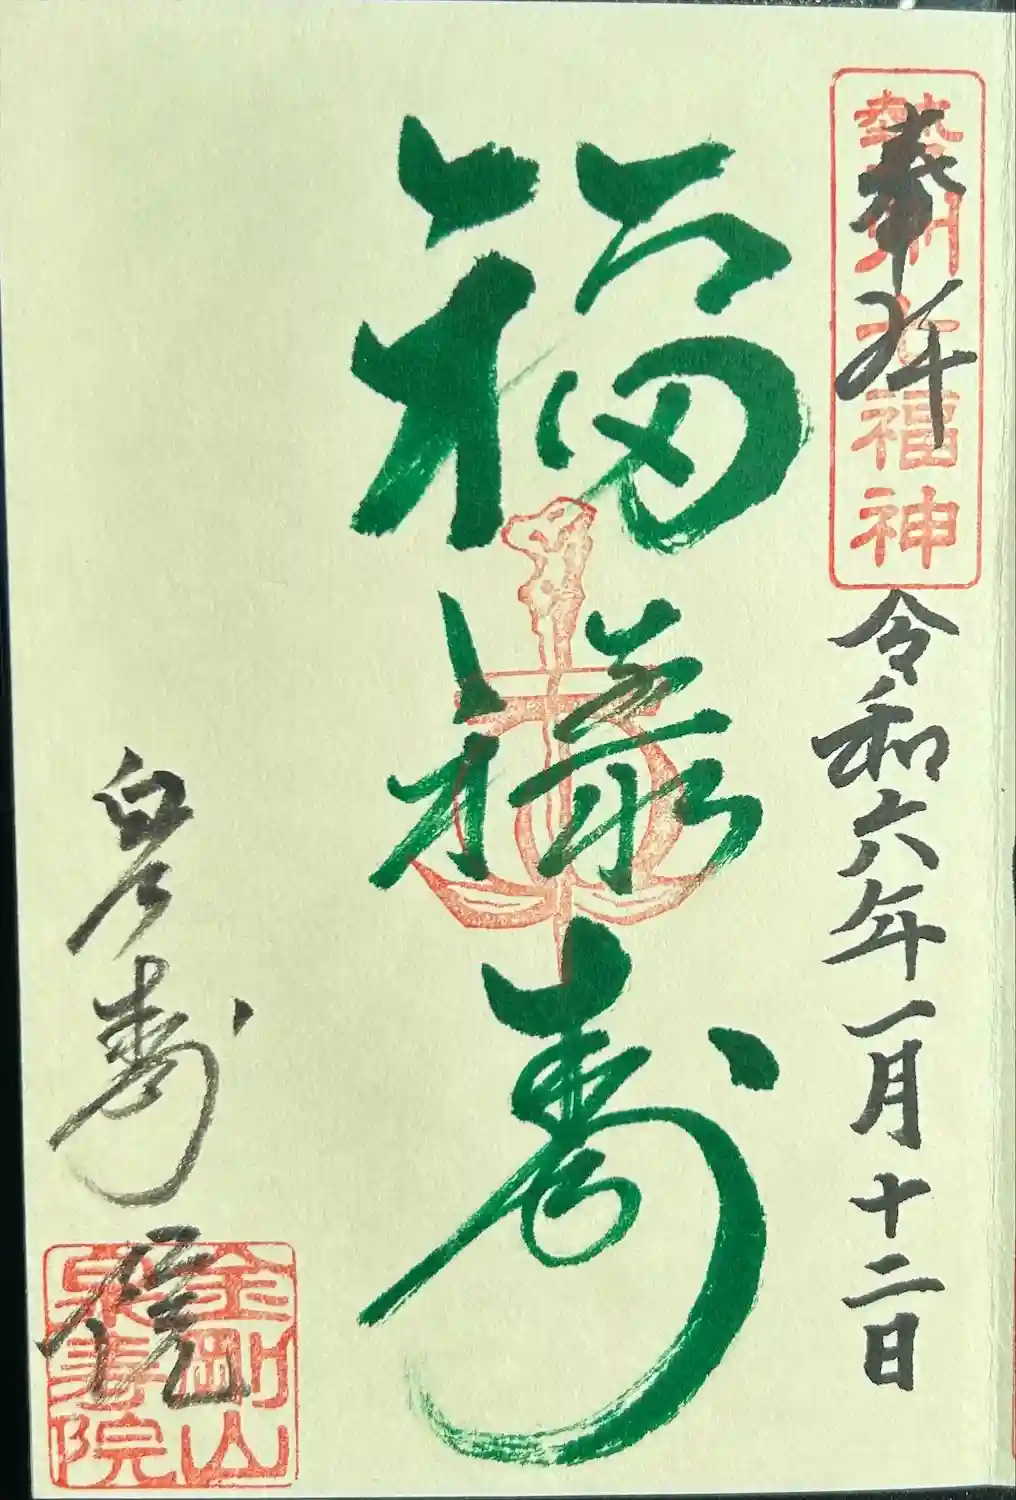 勢州七福神
奉拝
令和六年一月十二日
福禄寿
泉寿院
金剛山
泉寿院